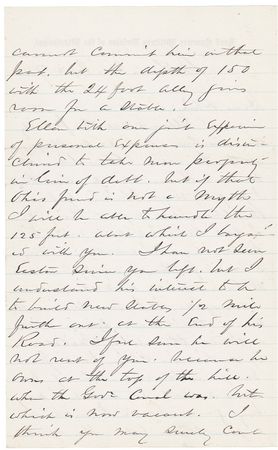 cannot commit him in that
part. but the depth of 150
with the 24 foot alley gives
room for a Stable.
Ellen with our joint Expenses
of personal expenses is disin-
clined to take more property
in lieu of debt. but if that
Ohio fund is not a Myth
I will be able to handle the
125 feet about which I
with you. I have not seen
since you left. but I
understand his interest to be
to build new Stables 1/2 mile
further out. at the End of his
Road. I fear he will
not rent of you. because he
owns at the top of the hill.
when the Govt Corral was. but
which is now vacant. I
think you may surely count